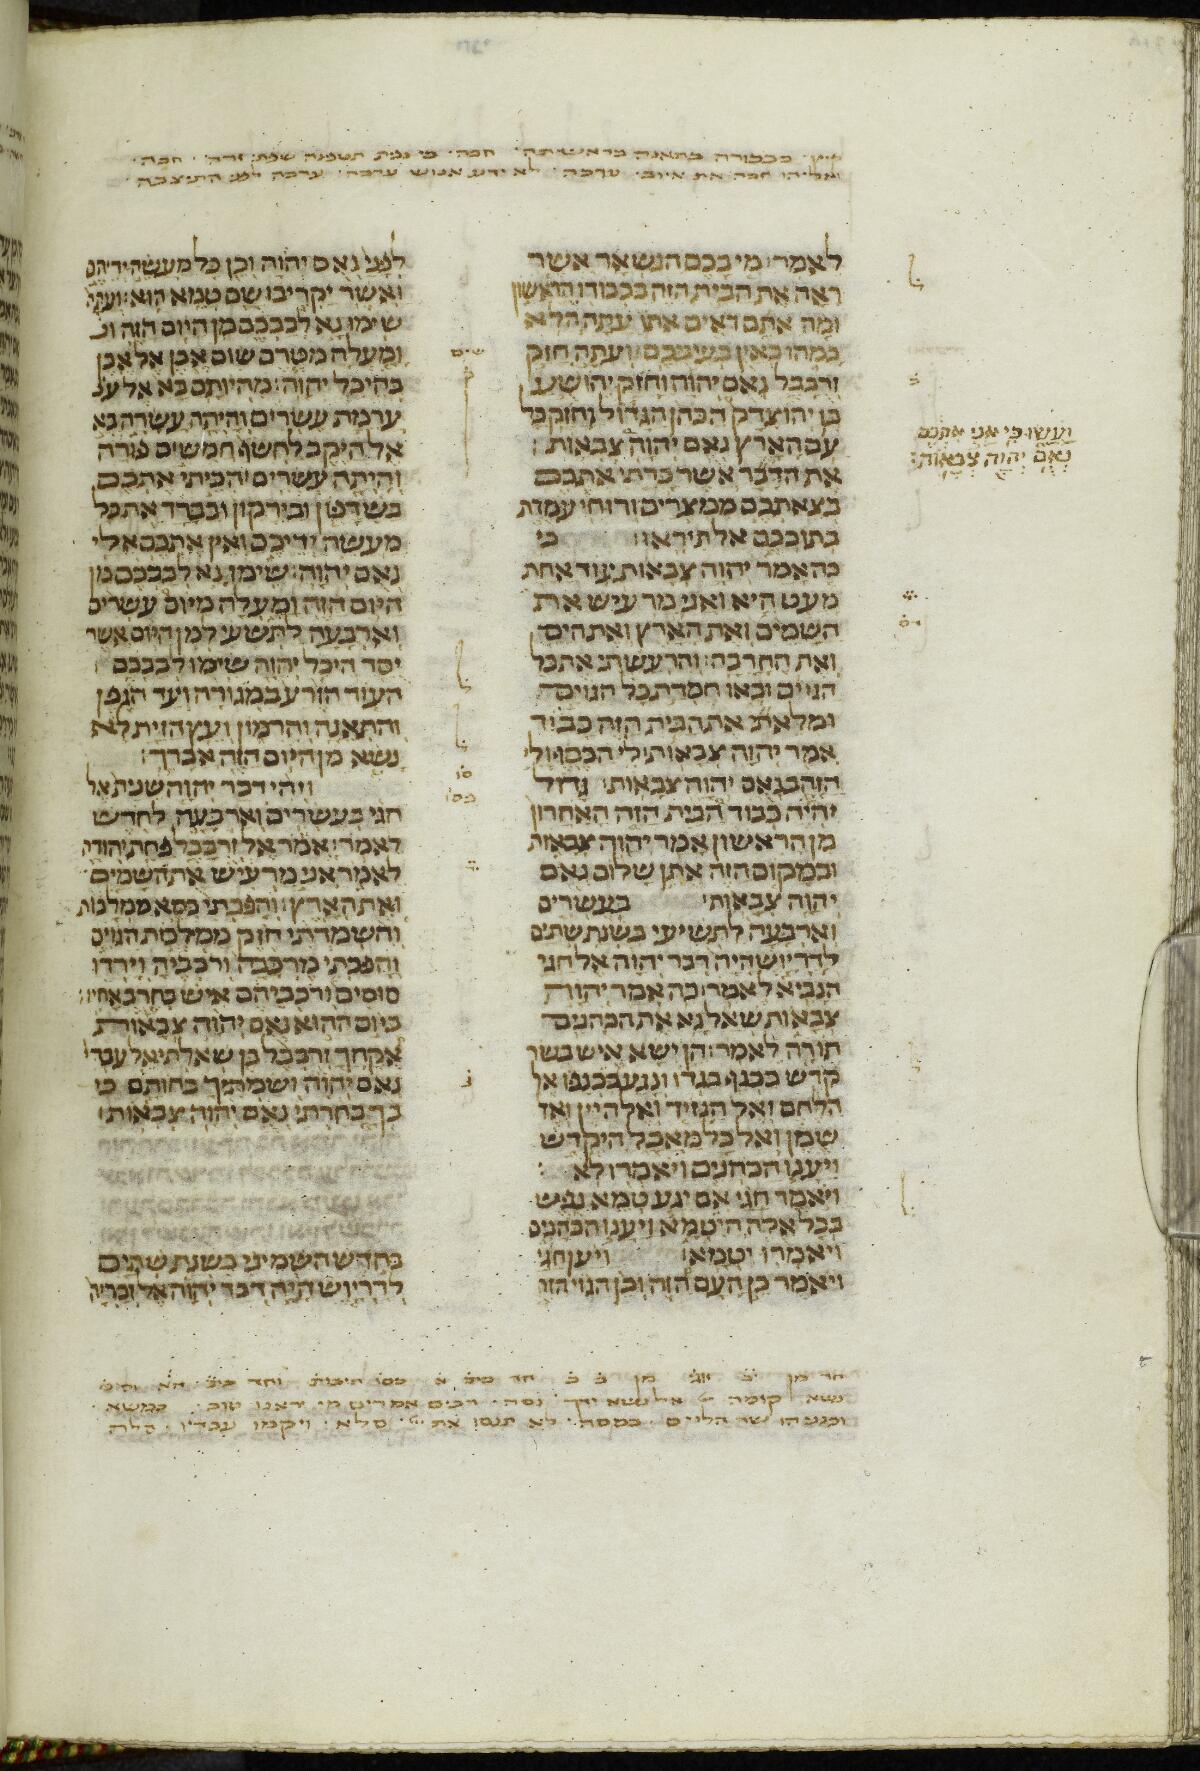 חגי
כבכורה בתאנה בראשיתה חכה כי גפית תשכנה שכת זרה חכה
ואליהו חכה את איוב ערכה לא ידע אנוש ערכה ערכה לפני התיצבה
לאמר׃ מי בכם הנשאר אשר
ראה את הבית הזה בכבודו הראשון
ומה אתם ראים אתו עתה הלא
כמהו כאין בעיניכם׃ ועתה חזק
זרבבל נאם יהוה וחזק יהושע
בן יהוצדק הכהן הגדול וחזק כל
עם הארץ נאם יהוה צבאות׃
את הדבר אשר כרתי אתכם
בצאתכם ממצרים ורוחי עמדת
בתוככם אל תיראו׃ כי
כה אמר יהוה צבאות עוד אחת
מעט היא ואני מרעיש את
השמים ואת הארץ ואת הים
ואת החרבה׃ והרעשתי את כל
הגוים ובאו חמדת כל הגוים
ומלאתי את הבית הזה כבוד
אמר יהוה צבאות׃ לי הכסף ולי
הזהב נאם יהוה צבאות׃ גדול
יהיה כבוד הבית הזה האחרון
מן הראשון אמר יהוה צבאות
ובמקום הזה אתן שלום נאם
יהוה צבאות׃ בעשרים
וארבעה לתשיעי בשנת שתים
לדריוש היה דבר יהוה אל חגי
הנביא לאמר׃ כה אמר יהוה
צבאות שאל נא את הכהנים
תורה לאמר׃ הן ישא איש בשר
קדש בכנף בגדו ונגע בכנפו אל
הלחם ואל הנזיד ואל היין ואל
שמן ואל כל מאכל היקדש
ויענו הכהנים ויאמרו לא׃
ויאמר חגי אם יגע טמא נפש
בכל אלה היטמא ויענו הכהנים
ויאמרו יטמא׃ ויען חגי
ויאמר כן העם הזה וכן הגוי הזה
ועשו כי אני אתכם
נאם יהוה צבאות׃
לפני נאם יהוה וכן כל מעשה ידיהם
ואשר יקריבו שם טמא הוא׃ ועתה
שימו נא לבבכם מן היום הזה
ומעלה מטרם שום אבן אל אבן
בהיכל יהוה׃ מהיותם בא אל
ערמת עשרים והיתה עשרה בא
אל היקב לחשף חמשים פורה
והיתה עשרים׃ הכיתי אתכם
בשדפון ובירקון ובברד את כל
מעשה ידיכם ואין אתכם אלי
נאם יהוה׃ שימו נא לבבכם מן
היום הזה ומעלה מיום עשרים
וארבעה לתשיעי למן היום אשר
יסד היכל יהוה שימו לבבכם
העוד הזרע במגורה ועד הגפן
והתאנה והרמון ועץ הזית לא
נשא מן היום הזה אברך׃
ויהי דבר יהוה שנית אל
חגי בעשרים וארבעה לחדש
לאמר׃ אמר אל זרבבל פחת יהודה
לאמר אני מרעיש את השמים
ואת הארץ׃ והפכתי כסא ממלכות
והשמדתי חזק ממלכת הגוים
והפכתי מרכבה ורכביה וירדו
סוסים ורכביהם איש בחרב אחיו׃
ביום ההוא נאם יהוה צבאות
אקחך זרבבל בן שאלתיאל עבדי
נאם יהוה ושמתיך כחותם כי
בך בחרתי נאם יהוה צבאות׃
בחדש השמיני בשנת שתים
לדריוש היה דבר יהוה אל זכריה
נשא קומה אל נשא ידך נסה רבים אמרים מי יראנו טוב במשא
וכנניהו שר הלוים במסה לא תנסו את סלא ויקמו עבדיו סלה